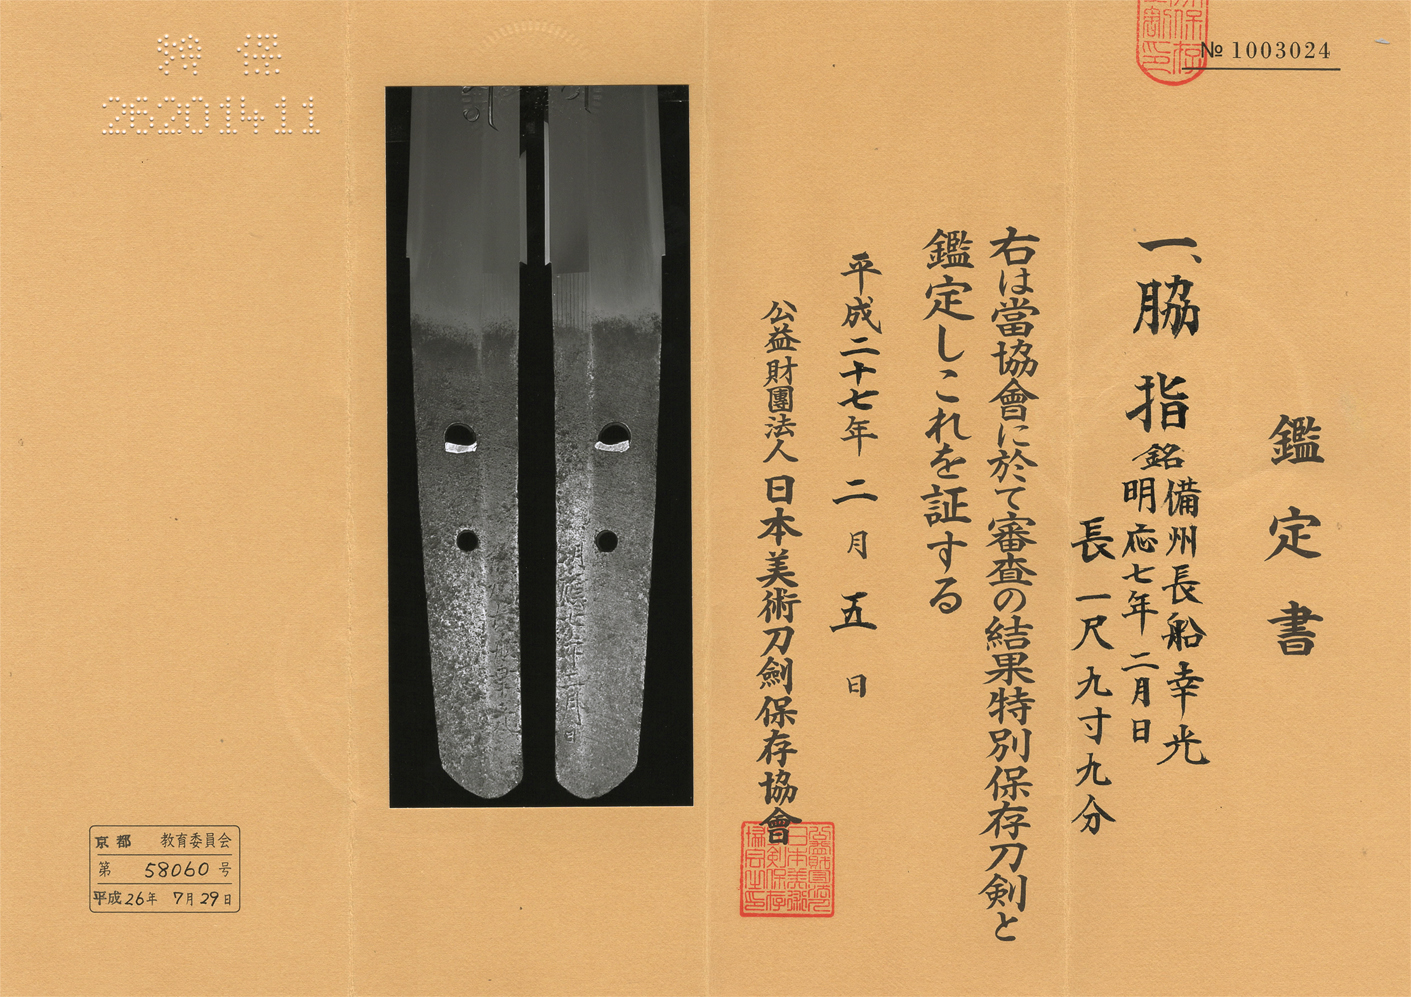 № 1003024
鑑定書
一、脇指
銘
備州長船幸光
明応七年二月日
長一尺九寸九分
右は當協會に於て審査の結果特別保存刀剣と
鑑定しこれを証する
平成二十七年二月五日
公益財團法人日本美術刀劍保存協會
明應七年二月日
26201411
京都 教育委員会
第 58060 号
平成26年 7月29日